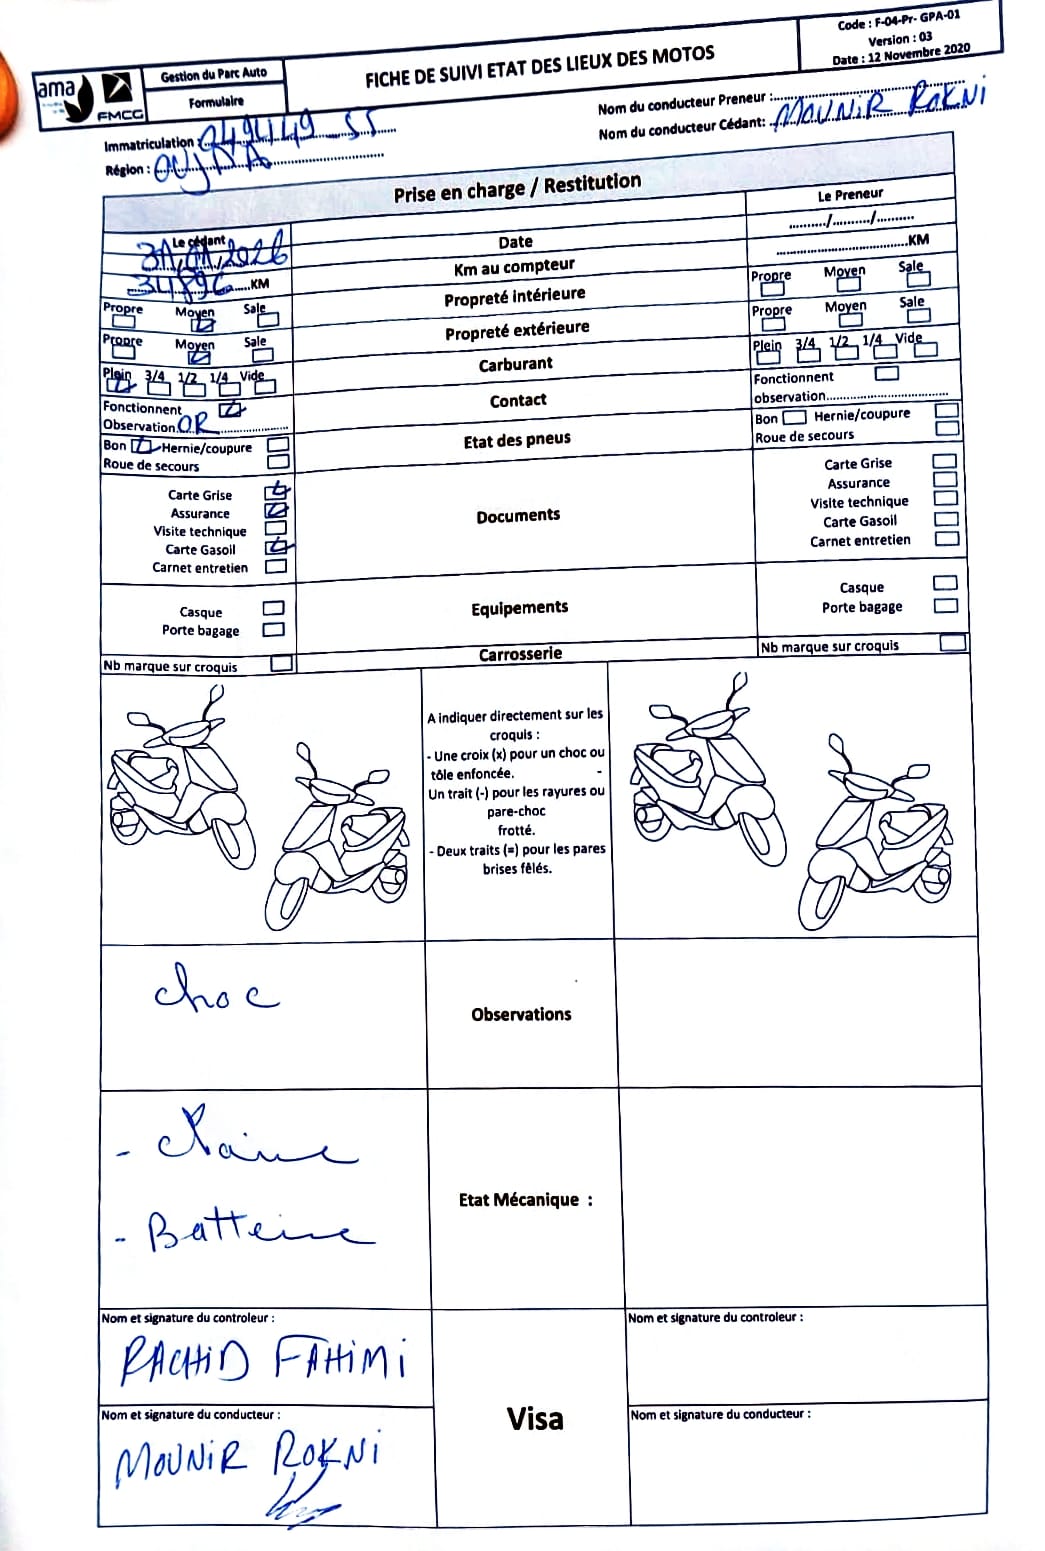 ama
FMCG
Gestion du Parc Auto
Formulaire
FICHE DE SUIVI ETAT DES LIEUX DES MOTOS
Code : F-04-Pr- GPA-01
Version : 03
Date : 12 Novembre 2020
Immatriculation :
Région : OUJDA
Nom du conducteur Preneur :
Nom du conducteur Cédant: MOUNIR ROKNI
Prise en charge / Restitution
Le cédant
Le Preneur
31/01/2026
Date
........./........./.........
34896 KM
Km au compteur
KM
Propre Moyen Sale
Propreté intérieure
Propre Moyen Sale
Propre Moyen Sale
Propreté extérieure
Propre Moyen Sale
Plein 3/4 1/2 1/4 Vide
Carburant
Plein 3/4 1/2 1/4 Vide
Fonctionnent
Observation OR
Contact
Fonctionnent
observation
Bon Hernie/coupure
Roue de secours
Etat des pneus
Bon Hernie/coupure
Roue de secours
Carte Grise
Assurance
Visite technique
Carte Gasoil
Carnet entretien
Documents
Carte Grise
Assurance
Visite technique
Carte Gasoil
Carnet entretien
Casque
Porte bagage
Equipements
Casque
Porte bagage
Nb marque sur croquis
Carrosserie
Nb marque sur croquis
A indiquer directement sur les
croquis :
- Une croix (x) pour un choc ou
tôle enfoncée. -
Un trait (-) pour les rayures ou
pare-choc
frotté.
- Deux traits (=) pour les pares
brises fêlés.
choc
Observations
- chaine
- Batterie
Etat Mécanique :
Nom et signature du controleur :
RACHID FAHIMI
Nom et signature du conducteur :
MOUNIR ROKNI
Visa
Nom et signature du controleur :
Nom et signature du conducteur :